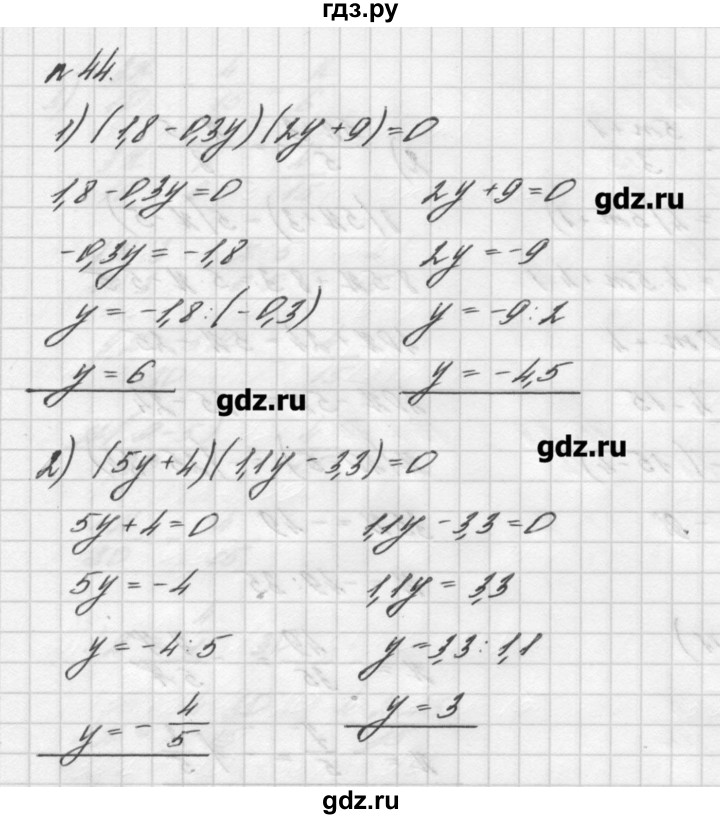 гдз.ру
n 44.
1) (1,8 - 0,3y)(2y + 9) = 0
1,8 - 0,3y = 0
-0,3y = -1,8
y = -1,8 : (-0,3)
y = 6
2y + 9 = 0
2y = -9
y = -9 : 2
y = -4,5
gdz.ru
gdz.ru
2) (5y + 4)(1,1y - 3,3) = 0
gdz.ru
5y + 4 = 0
5y = -4
y = -4 : 5
y = - 4/5
1,1y - 3,3 = 0
1,1y = 3,3
y = 3,3 : 1,1
y = 3
gdz.ru